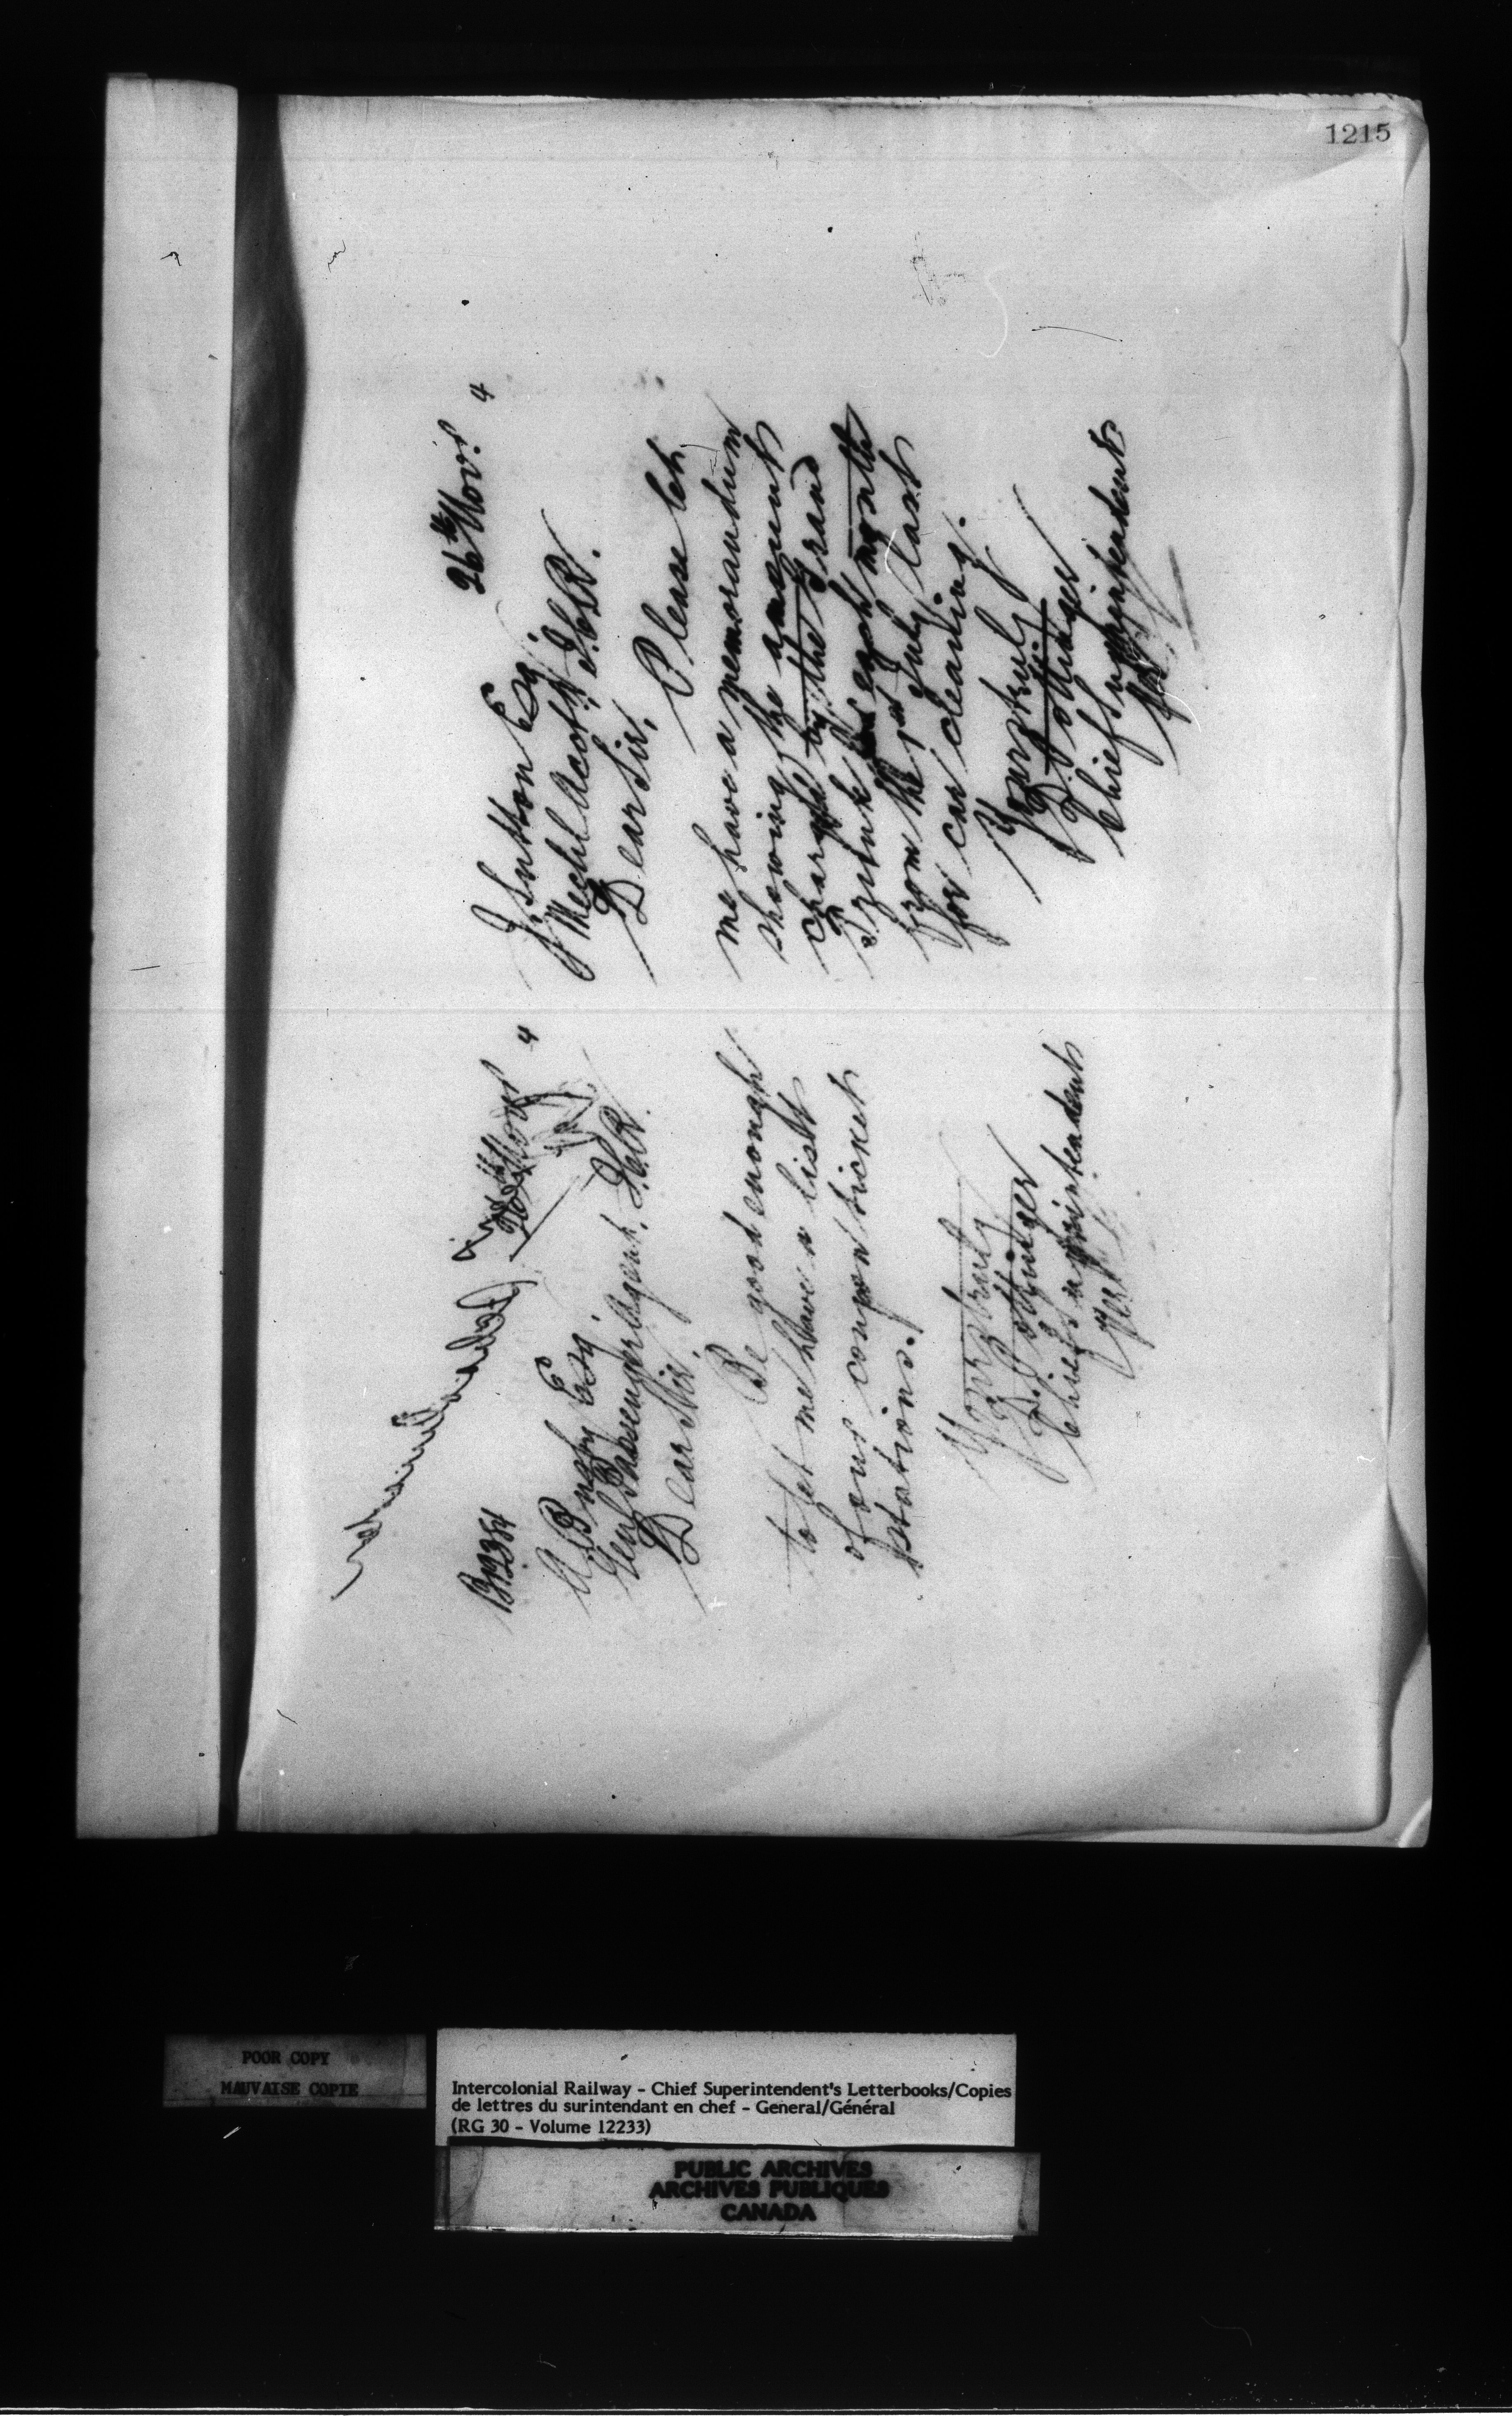 1215
26th Nov. 4
J. Sutton Esq.
Mech'l Acct. I.C.R.
Dear Sir,
Please let
me have a memorandum
showing the amount
charged by the Grand
Trunk each month
from the 1st July last
for car cleaning.
Yours truly
D. Pottinger
Chief Superintendent
Per
26th Nov. 4
A. Busby Esq.
Gen'l Passenger Agent, I.C.R.
Dear Sir,
Be good enough
to let me have a list
of our coupon ticket
stations.
Yours truly
D. Pottinger
Chief Superintendent
Per
POOR COPY
MAUVAISE COPIE
Intercolonial Railway - Chief Superintendent's Letterbooks/Copies
de lettres du surintendant en chef - General/Général
(RG 30 - Volume 12233)
PUBLIC ARCHIVES
ARCHIVES PUBLIQUES
CANADA